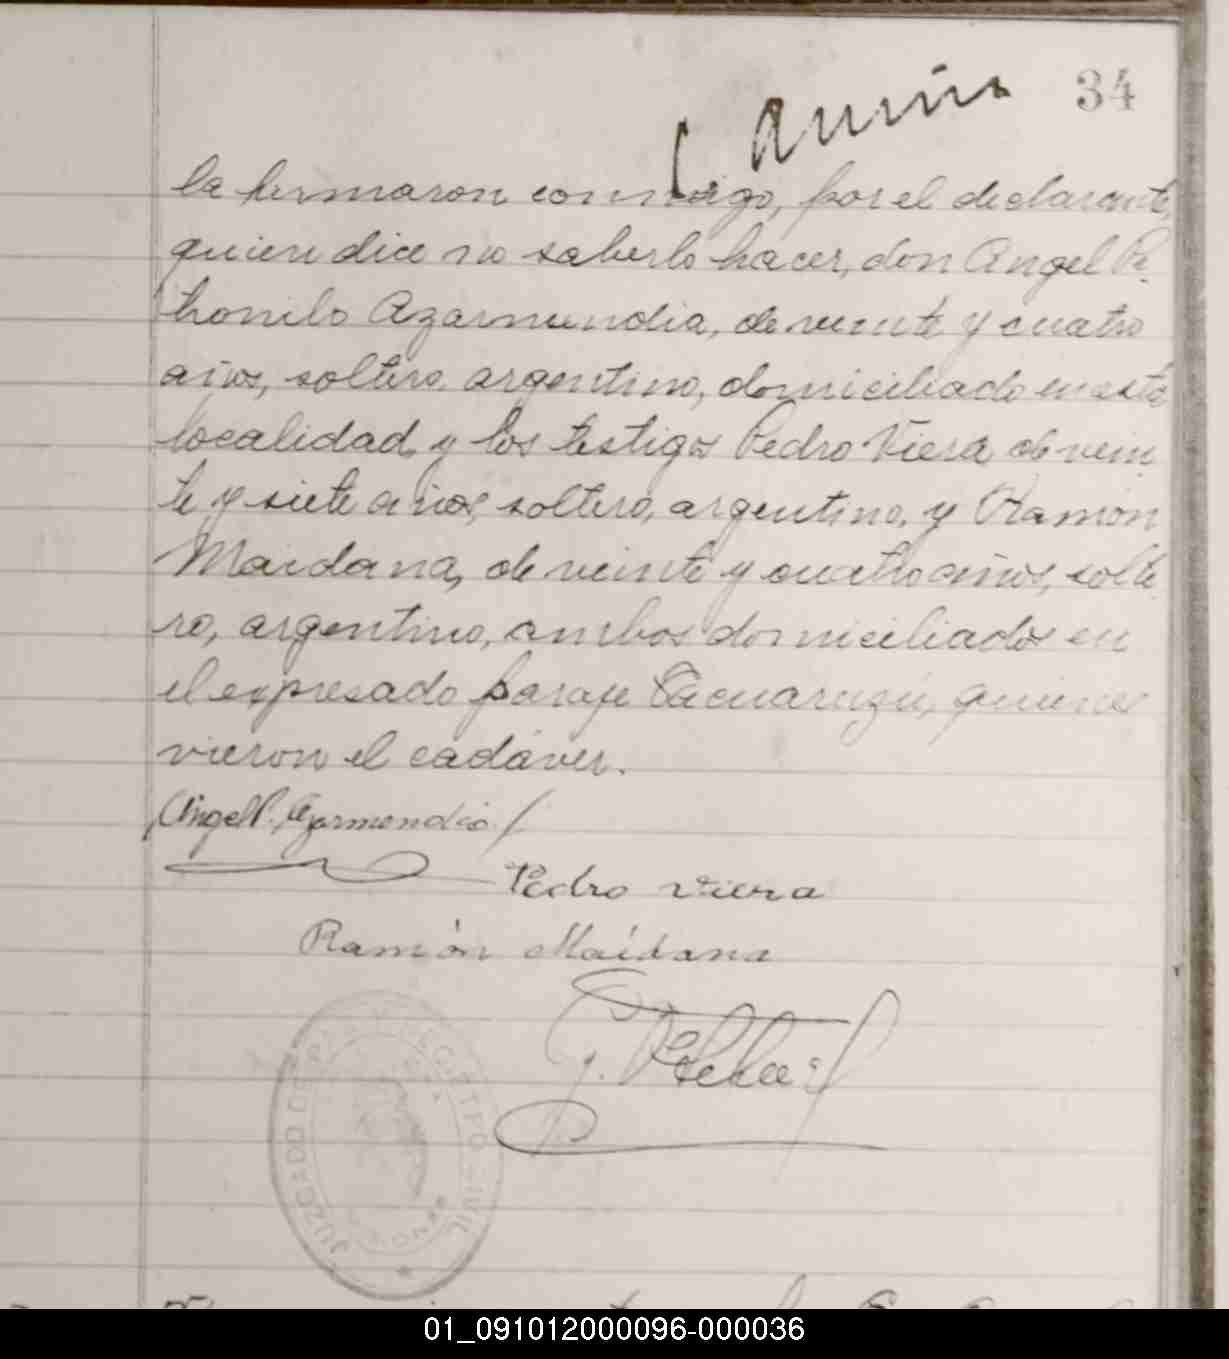 34
la firmaron conmigo, por el declarante,
quien dice no saberlo hacer, don Angel Pe
tronilo Azarmendia, de veinte y cuatro
años, soltero, argentino, domiciliado en esta
localidad, y los testigos Pedro Viera de vein
te y siete años, soltero, argentino, y Ramón
Maidana, de veinte y cuatro años, solte
ro, argentino, ambos domiciliados en
el expresado paraje Tacuaruzú, quienes
vieron el cadáver.
Angel P. Azarmendia
Pedro Viera
Ramón Maidana
JUZGADO DE PAZ Y REGISTRO CIVIL
01_091012000096-000036